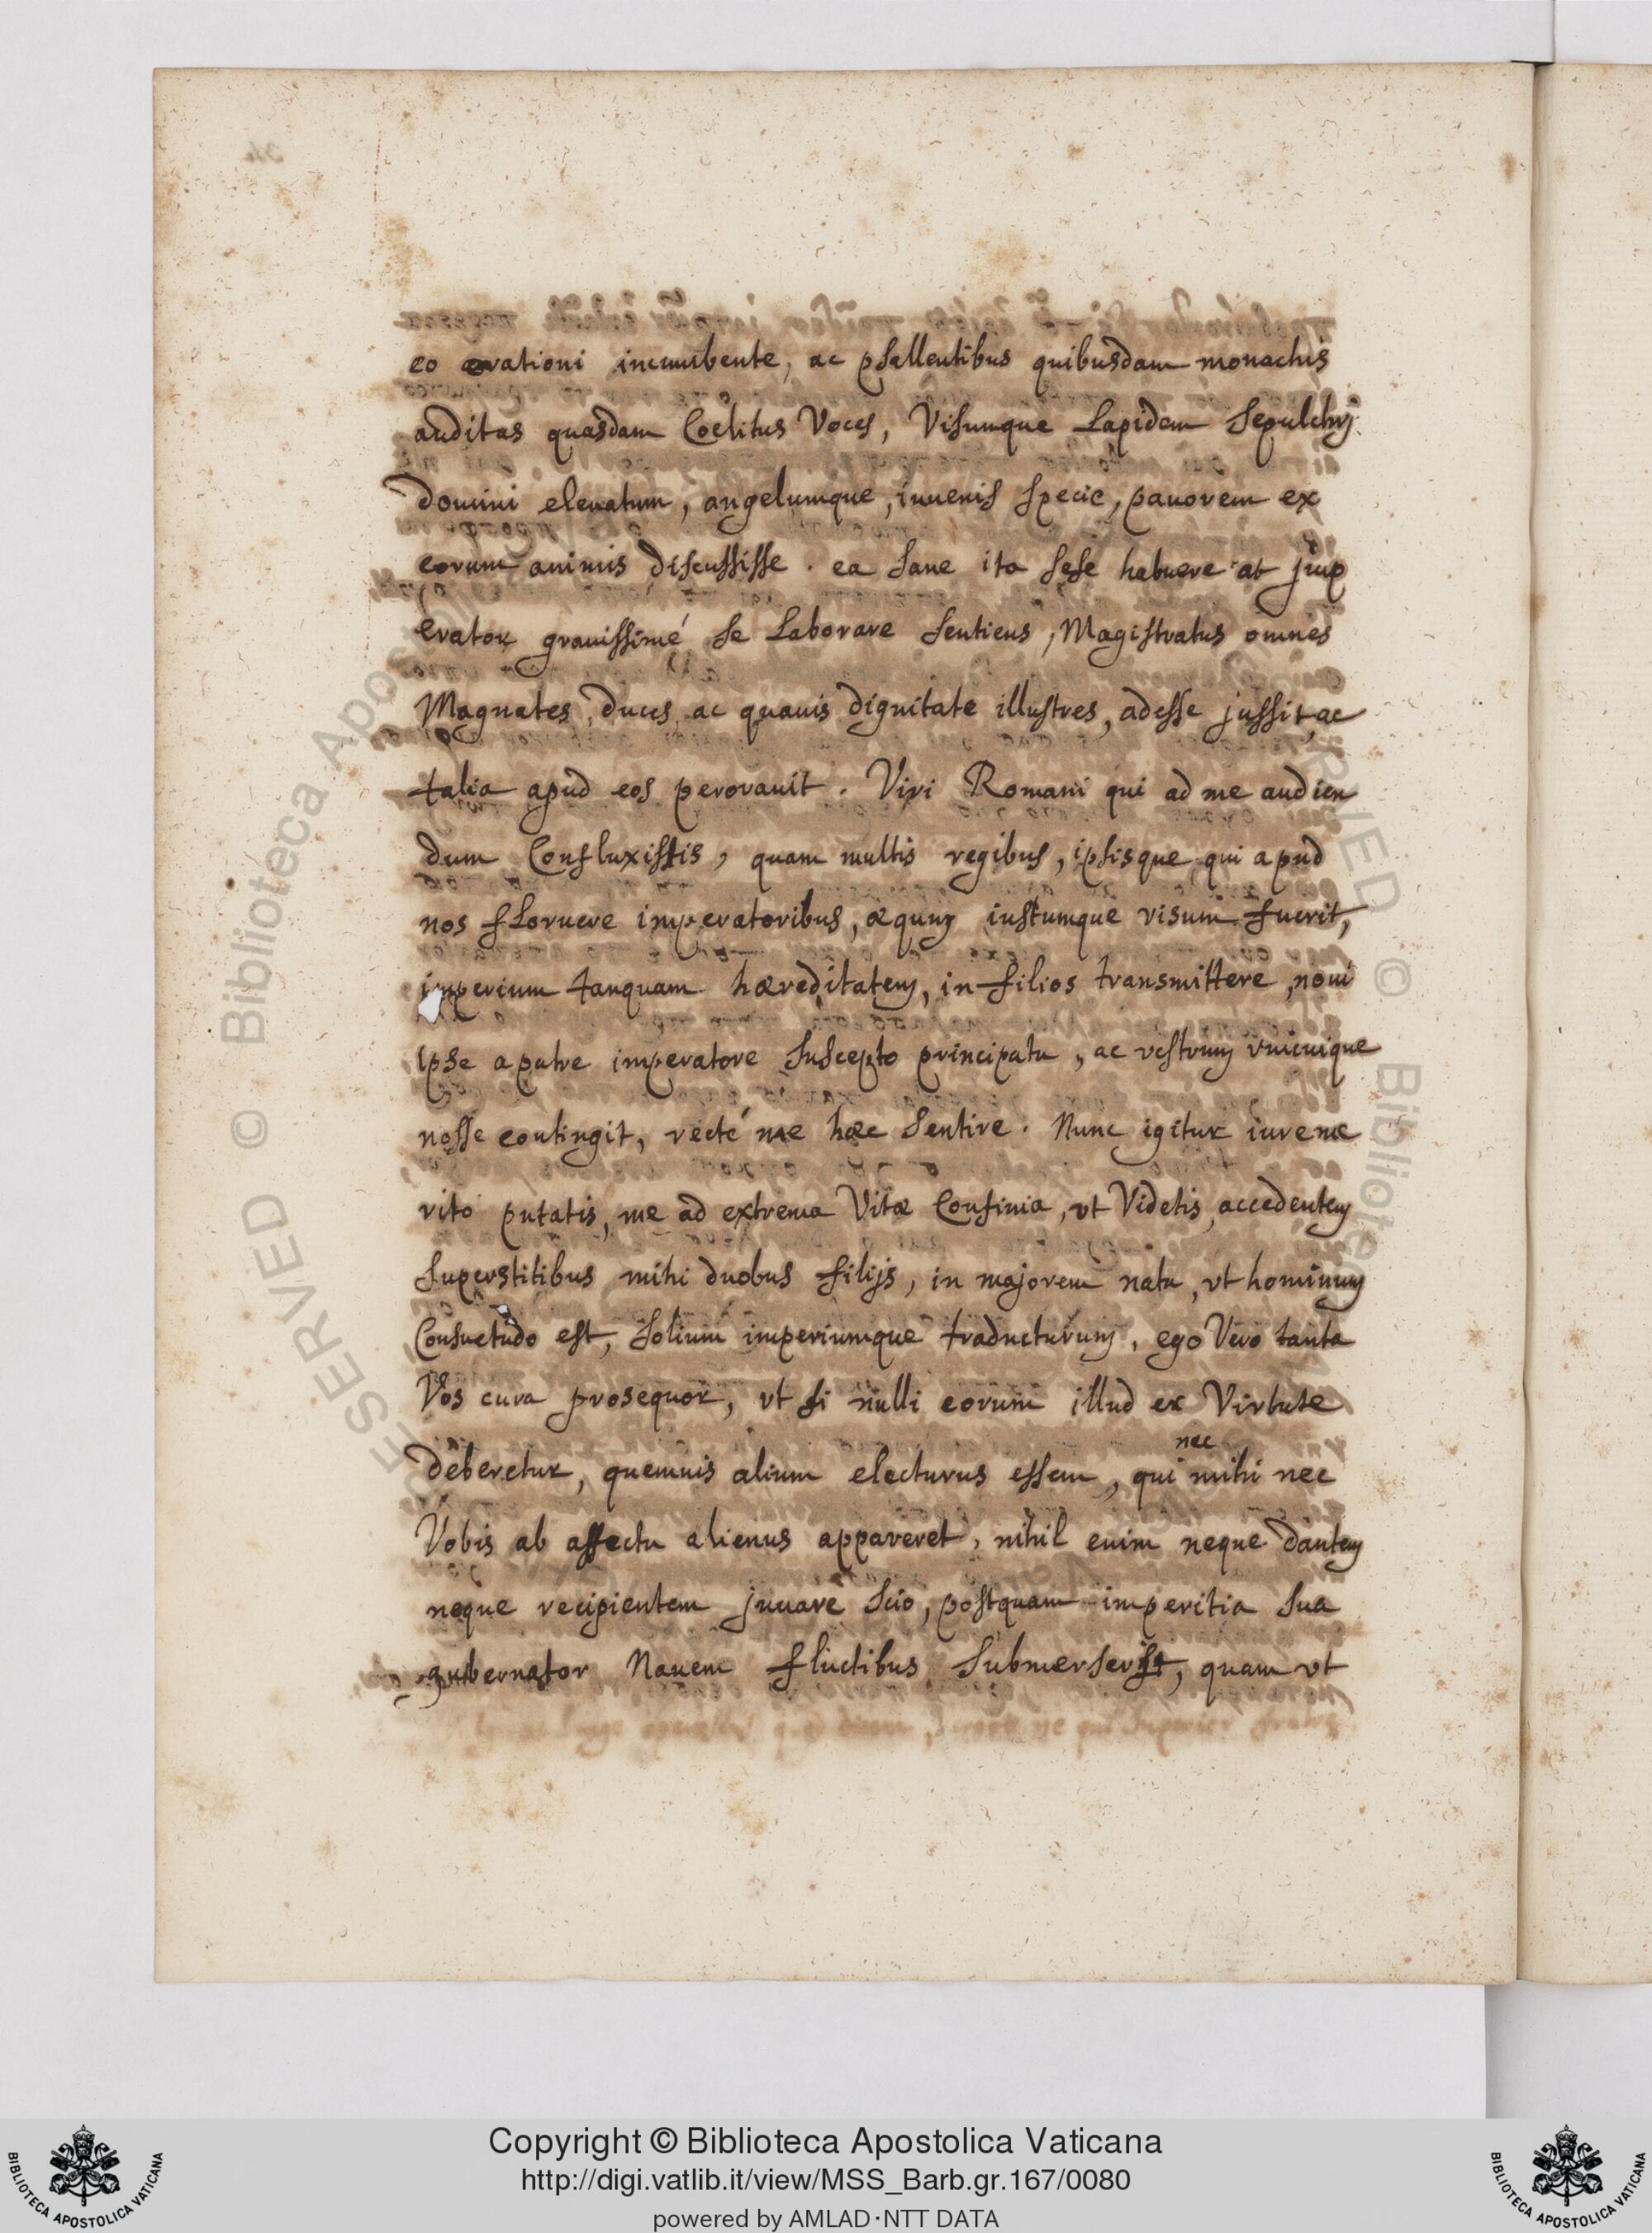 eo orationi incumbente, ac psallentibus quibusdam monachis
auditas quasdam Coelitus Voces, Visumque Lapidem Sepulchrj
domini eleuatum, angelumque, iuuenis specie, pauorem ex
eorum animis discussisse. ea sane ita sese habuere at jmp
erator grauissimé se Laborare sentiens, Magistratus omnes
Magnates, duces, ac quauis dignitate illustres, adesse jussit, ac
talia apud eos perorauit. Viri Romani qui ad me audien
dum Confluxistis, quam multis regibus, ipsisque qui apud
nos floruere imperatoribus, æquum iustumque visum fuerit,
imperium tanquam hæreditatem, in filios transmittere, noui
ipse a patre imperatore suscepto principatu, ac vestrum vnicuique
nosse contingit, recté me hæc sentire. Nunc igitur iure me
rito putatis, me ad extrema Vitæ Confinia, vt Videtis, accedentem
superstitibus mihi duobus filijs, in majorem natu, vt hominum
Consuetudo est, solium imperiumque traducturum, ego Vero tanta
Vos cura prosequor, vt si nulli eorum illud ex Virtute
deberetur, quemuis alium electurus essem, qui nec mihi nec
Vobis ab affectu alienus appareret, nihil enim neque dantem
neque recipientem juuare scio, postquam imperitia sua
gubernator Nauem fluctibus submerserit, quam vt
Copyright © Biblioteca Apostolica Vaticana
http://digi.vatlib.it/view/MSS_Barb.gr.167/0080
powered by AMLAD·NTT DATA
BIBLIOTECA APOSTOLICA VATICANA
BIBLIOTECA APOSTOLICA VATICANA